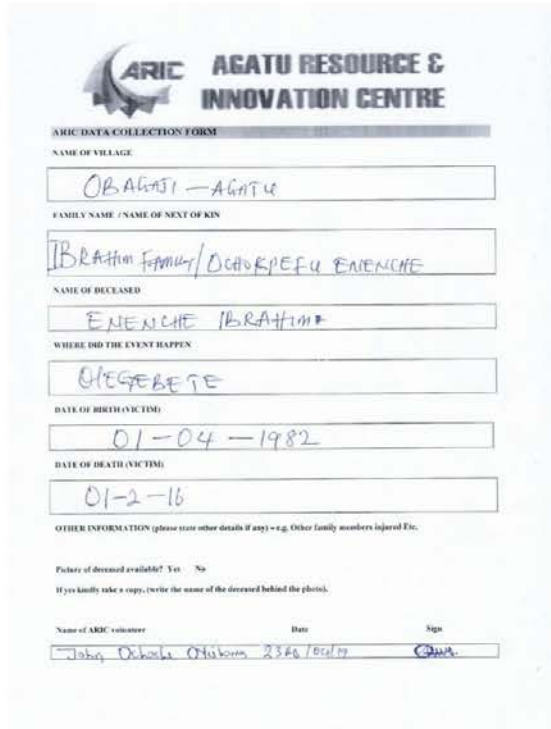 ARIC
AGATU RESOURCE &
INNOVATION CENTRE
ARIC DATA COLLECTION FORM
NAME OF VILLAGE
OBAGATI — AGATU
FAMILY NAME / NAME OF NEXT OF KIN
IBRAHIM FAMILY/ OCHORPEFU ENENCHE
NAME OF DECEASED
ENENCHE IBRAHIM
WHERE DID THE EVENT HAPPEN
OLEGEBETE
DATE OF BIRTH (VICTIM)
01-04-1982
DATE OF DEATH (VICTIM)
01-2-16
OTHER INFORMATION (please state other details if any) – e.g. Other family members injured Etc.
Picture of deceased available? Yes No
If yes kindly take a copy, (write the name of the deceased behind the photo).
Name of ARIC volunteer Date Sign
John